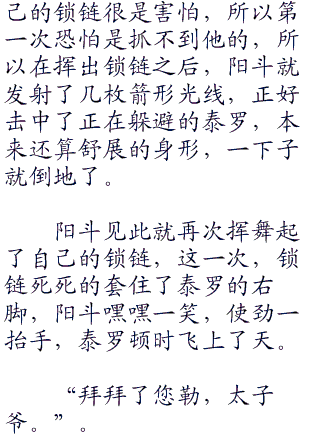 己的锁链很是害怕，所以第
一次恐怕是抓不到他的，所
以在挥出锁链之后，阳斗就
发射了几枚箭形光线，正好
击中了正在躲避的泰罗，本
来还算舒展的身形，一下子
就倒地了。
阳斗见此就再次挥舞起
了自己的锁链，这一次，锁
链死死的套住了泰罗的右
脚，阳斗嘿嘿一笑，使劲一
抬手，泰罗顿时飞上了天。
“拜拜了您勒，太子
爷。”。